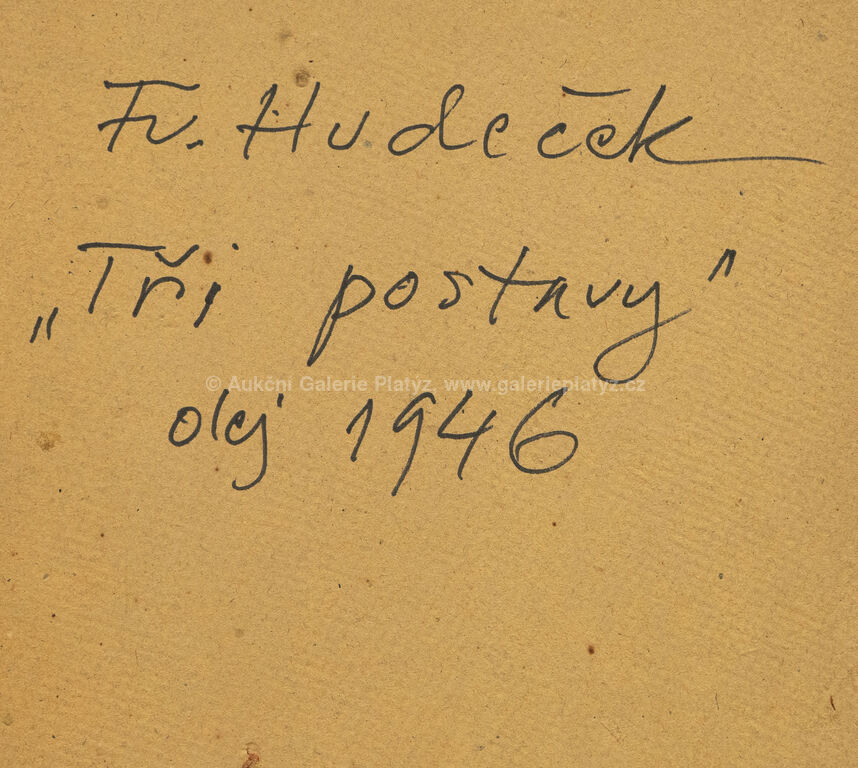 Fr. Hudeček
„Tři postavy"
© Aukční Galerie Platýz, www.galerieplatyz.cz
olej 1946